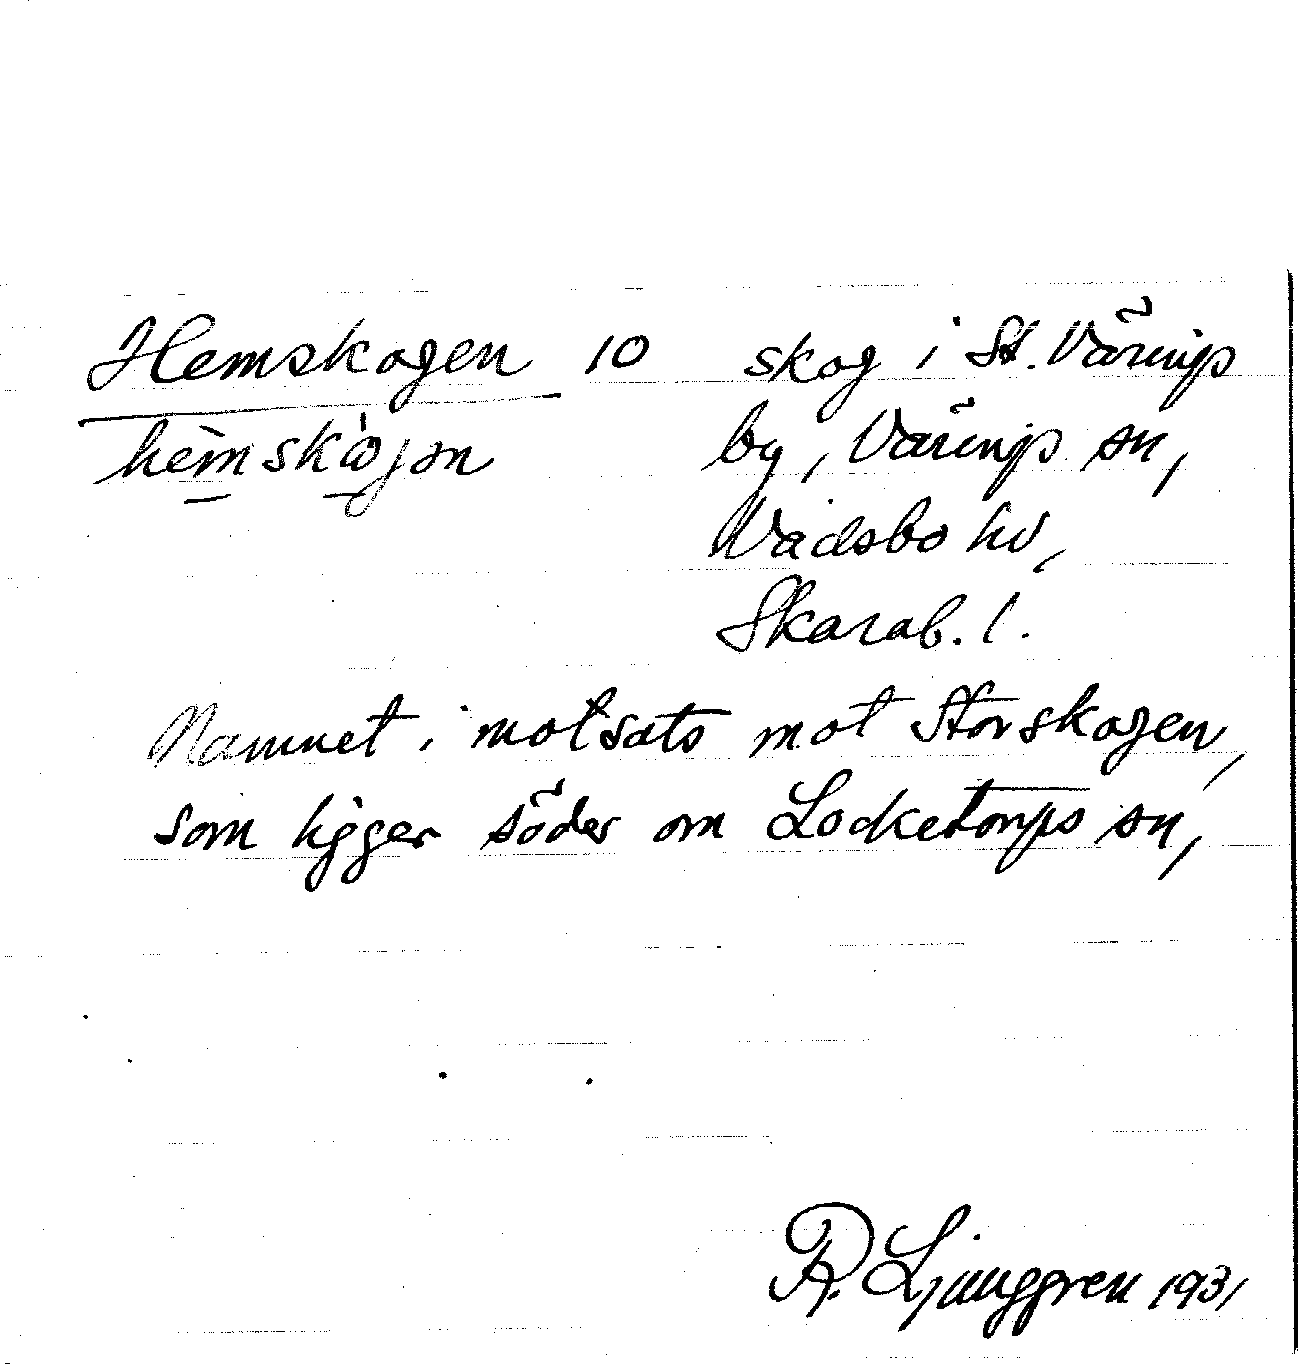 Hemskogen 10 skog i St. Värings
hèmskòjən by, Värings sn,
Vadsbo hd,
Skarab. l.
Namnet i motsats mot Storskogen,
som ligger söder om Locketorps sn,
R. Ljunggren 1931